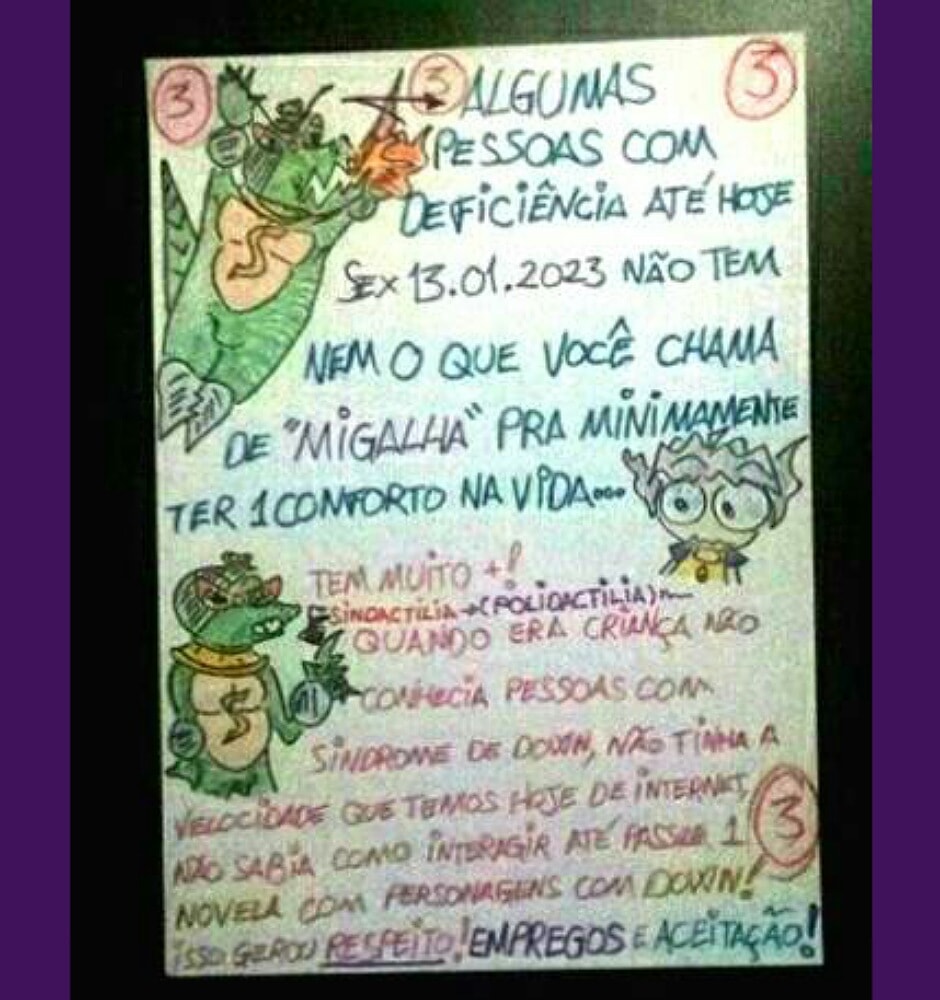 3 3 ALGUMAS 3
PESSOAS COM
DEFICIÊNCIA ATÉ HOJE
SEX 13.01.2023 NÃO TEM
NEM O QUE VOCÊ CHAMA
DE "MIGALHA" PRA MINIMAMENTE
TER 1 CONFORTO NA VIDA...
TEM MUITO +!
SINDACTILIA → (POLIDACTILIA)
QUANDO ERA CRIANÇA NÃO
CONHECIA PESSOAS COM
SÍNDROME DE DOWN, NÃO TINHA A
VELOCIDADE QUE TEMOS HOJE DE INTERNET,
NÃO SABIA COMO INTERAGIR ATÉ PASSAR 1 3
NOVELA COM PERSONAGENS COM DOWN!
ISSO GEROU RESPEITO! EMPREGOS E ACEITAÇÃO!